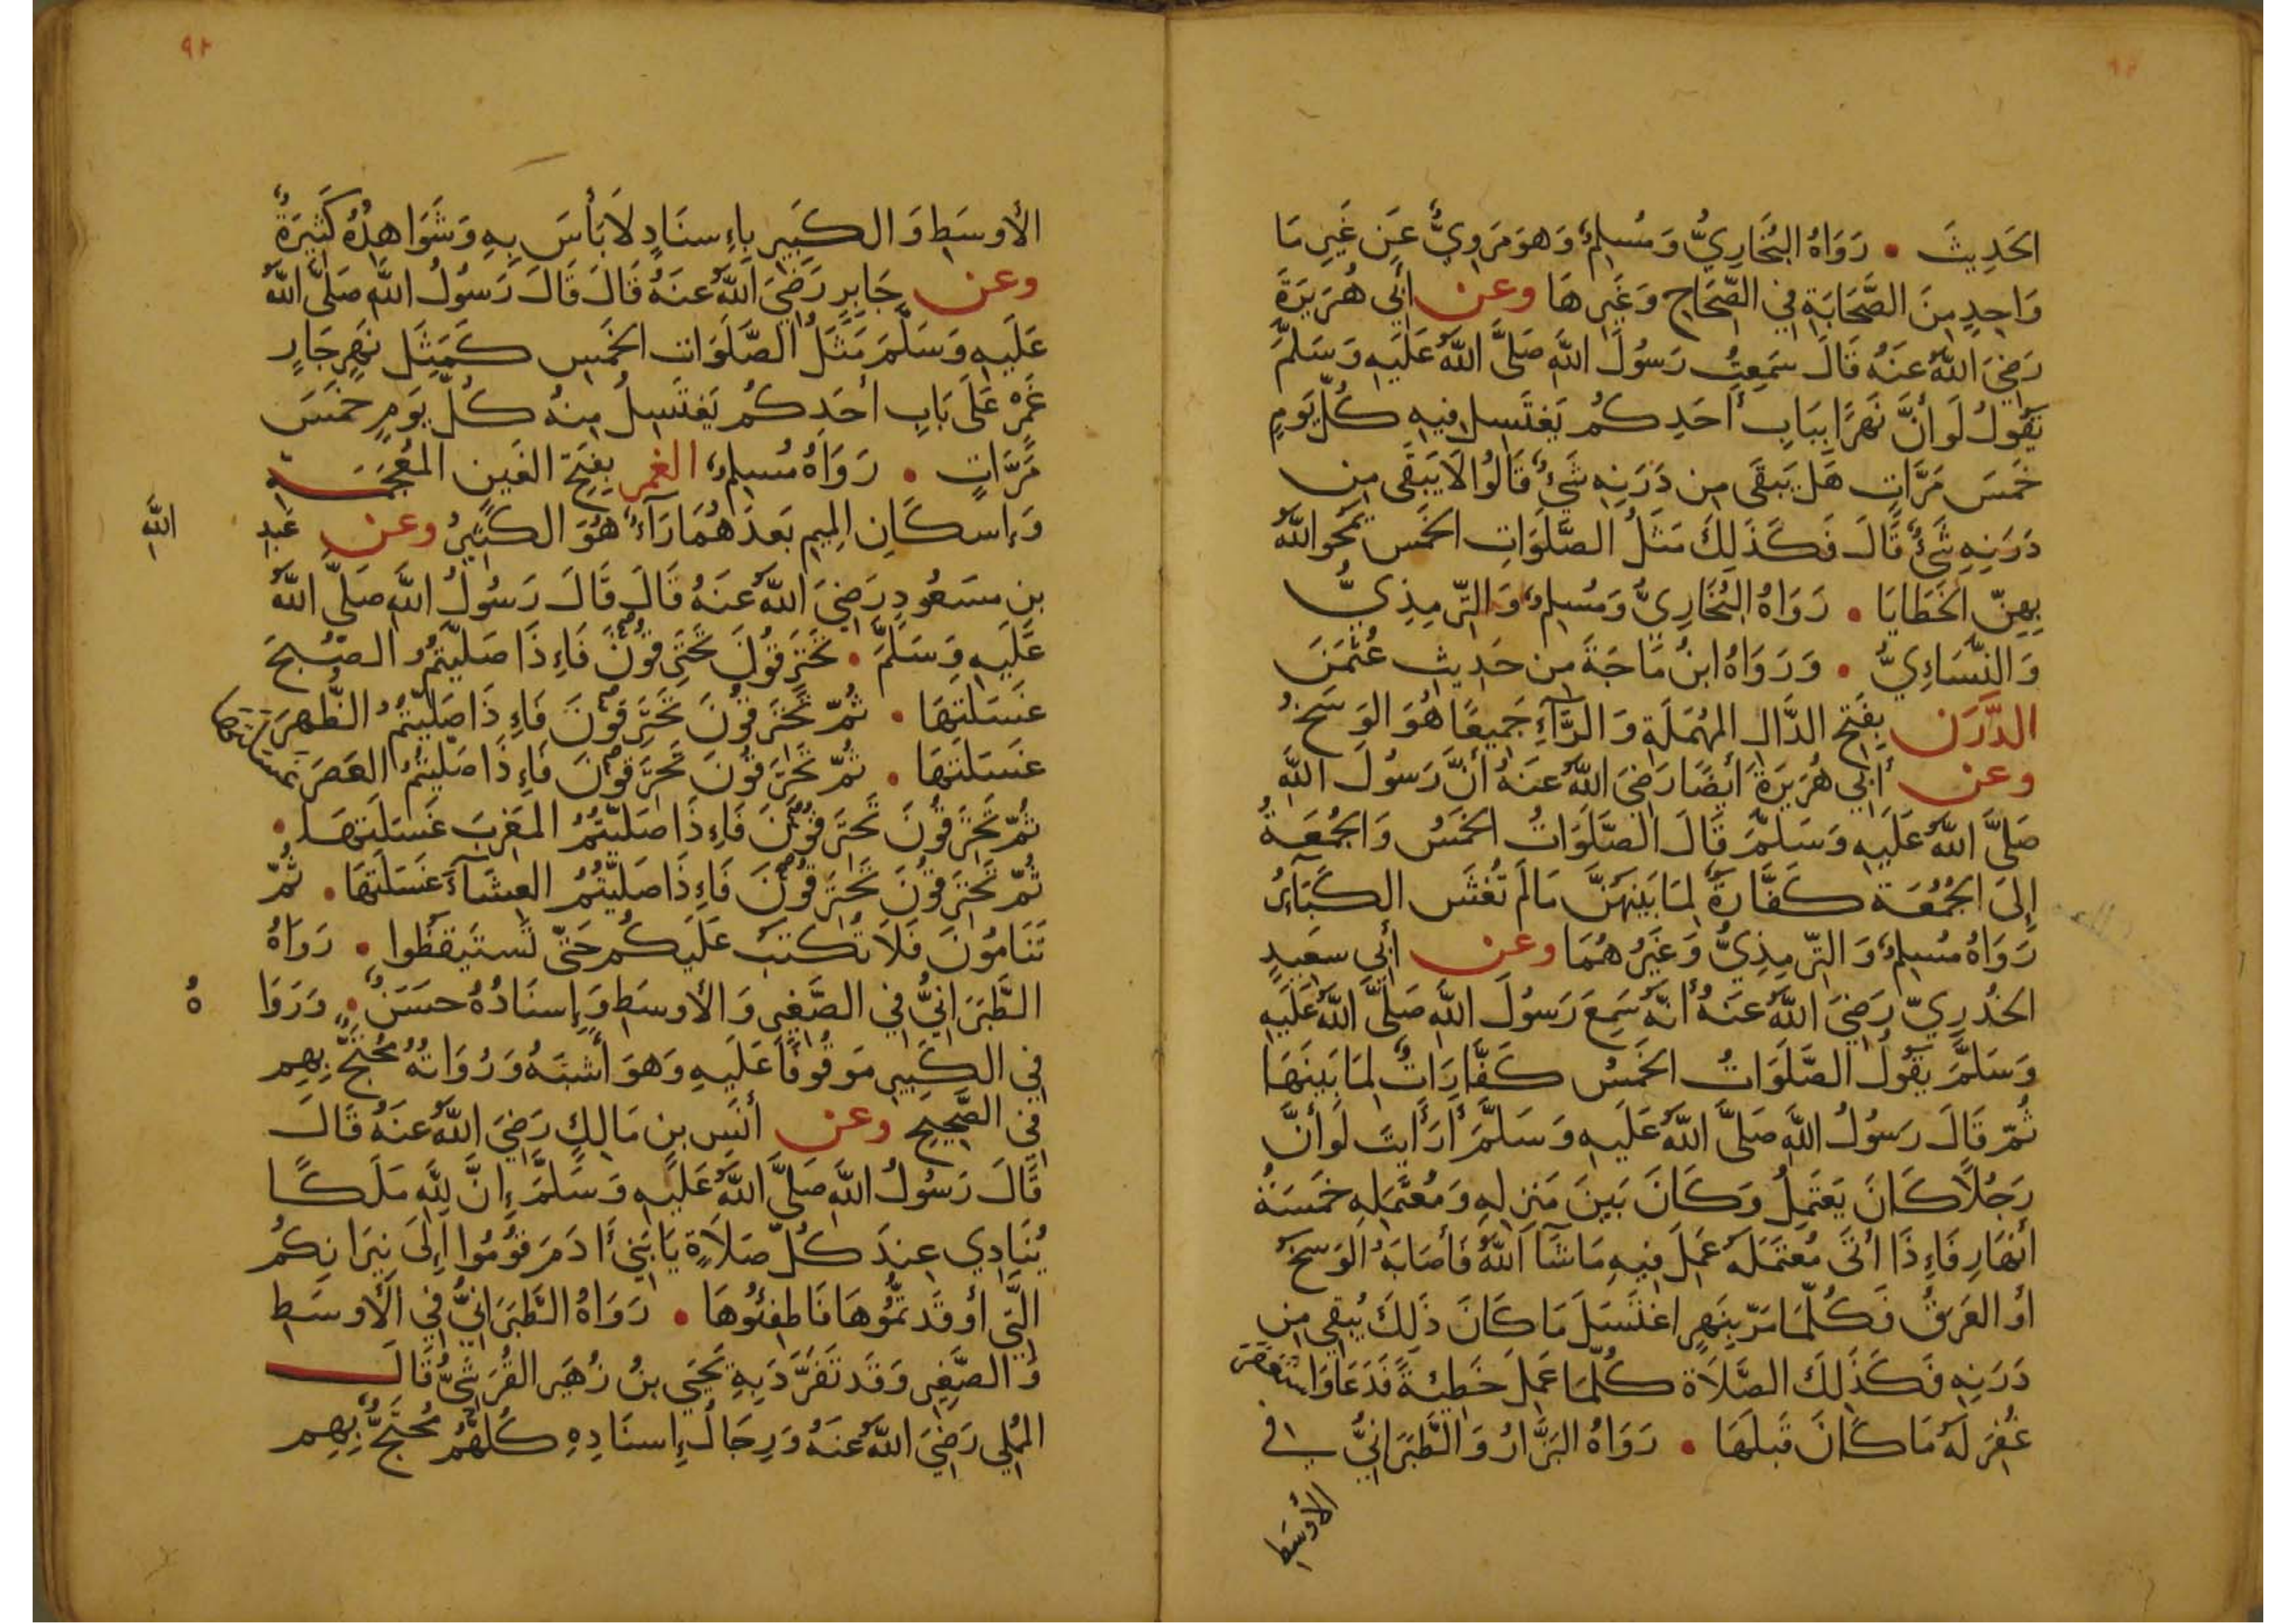 الحَدِيثَ • رَوَاهُ البُخَارِيُّ وَمُسْلِمٌ وَهوَ مَروِيٌّ عَن غَيرِ مَا
وَاحِدٍ مِنَ الصَّحَابَةِ فِي الصِّحَاحِ وَغَيرِهَا وعن أَبِي هُرَيرَةَ
رَضِيَ اللَّهُ عَنهُ قَالَ سَمِعتُ رَسُولَ اللَّهِ صَلَّى اللَّهُ عَلَيهِ وَسَلَّمَ
يَقُولُ لَو أَنَّ نَهرًا بِبَابِ أَحَدِكُم يَغتَسِل فِيهِ كُلَّ يَومٍ
خَمسَ مَرَّاتٍ هَل يَبقَى مِن دَرَنِهِ شَيءٌ قَالُوا لَا يَبقَى مِن
دَرَنِهِ شَيءٌ قَالَ فَكَذَلِكَ مَثَلُ الصَّلَوَاتِ الخَمسِ يَمحُو اللَّهُ
بِهِنَّ الخَطَايَا • رَوَاهُ البُخَارِيُّ وَمُسلِمٌ وَالتِّرمِذِيُّ
وَالنَّسَاءِيُّ • وَرَوَاهُ ابنُ مَاجَةَ مِن حَدِيثِ عُثمَنَ
الدَّرَن بِفَتحِ الدَّالِ المُهمَلَةِ وَالرَّآءِ جَمِيعًا هُوَ الوَسَخُ
وعن أَبِي هُرَيرَةَ أَيضًا رَضِيَ اللَّهُ عَنهُ أَنَّ رَسُولَ اللَّهِ
صَلَّى اللَّهُ عَلَيهِ وَسَلَّمَ قَالَ الصَّلَوَاتُ الخَمسُ وَالجُمُعَةُ
إِلَى الجُمُعَة كَفَّارَةٌ لِمَا بَينَهُنَّ مَا لَم تُغشَ الكَبَآئِرُ
رَوَاهُ مُسلِمٌ وَالتِّرمِذِيُّ وَغَيرُهُمَا وعن أَبِي سعَِيدٍ
الخُدرِيِّ رَضِيَ اللَّهُ عَنهُ أَنَّهُ سَمِعَ رَسُولَ اللَّهِ صَلَّى اللَّهُ عَلَيهِ
وَسَلَّمَ يَقُولُ الصَّلَوَاتُ الخَمسُ كَفَّارَاتٌ لِمَا بَينَهَا
ثُمَّ قَالَ رَسُولُ اللَّهِ صَلَّى اللَّهُ عَلَيهِ وَسَلَّمَ أَرَأَيتَ لَو أَنَّ
رَجُلًا كَانَ يَعتَمِلُ وَكَانَ بَينَ مَنزِلِهِ وَمُعتَمَلِهِ خَمسَةُ
أَنهَارٍ فَإِذَا أَتَى مُعتَمَلَهُ عَمِلَ فِيهِ مَا شَآ اللَّهُ فَأَصَابَهُ الوَسَخُ
أَو العَرَقُ فَكُلَّمَا مَرَّ بِنَهرٍ اغتَسَلَ مَا كَانَ ذَلِكَ يُبقِي مِن
دَرَنِهِ فَكَذَلِكَ الصَّلَاة كُلَّمَا عَمِلَ خَطِيئَةً فَدَعَا وَاستَغفَرَ
غُفِرَ لَهُ مَا كَانَ قَبلَهَا • رَوَاهُ البَزَّارُ وَالطَّبَرَانِيُّ في
الأَوسَطِ
٩٢
الأَوسَطِ وَالكَبِيرِ بِإِسنَادٍ لَا بَأسَ بِهِ وَشَوَاهِدُهُ كَثِيرَةٌ
وعن جَابِرٍ رَضِيَ اللَّهُ عَنهُ قَالَ قَالَ رَسُولُ اللَّهِ صَلَّى اللَّهُ
عَلَيهِ وَسَلَّمَ مَثَلُ الصَّلَوَاتِ الخَمسِ كَمَثَلِ نَهرٍ جَارٍ
غَمرٍ عَلَى بَابِ أَحَدِكُم يَغتَسِلُ مِنهُ كُلَّ يَومٍ خَمسَ
مَرَّاتٍ • رَوَاهُ مُسلِمٌ الغمر بِفَتحِ الغَينِ المُعجَمَة
وَإِسكَانِ المِيمِ بَعدَهُمَا رَآءٌ هُوَ الكَثِيرُ وعن عَبدِ اللَّهِ
بنِ مسَعُودٍ رَضِيَ اللَّهُ عَنهُ قَالَ قَالَ رَسُولُ اللَّهِ صَلَّى اللَّهُ
عَلَيهِ وَسَلَّمَ • تَحتَرِقُونَ تَحتَرِقُونَ فَإِذَا صَلَّيتُمُ الصُّبحَ
غَسَلَتهَا • ثُمَّ تَحتَرِقُونَ تَحتَرِقُونَ فَإِذَا صَلَّيتُمُ الظُّهرَ
غَسَلَتهَا • ثُمَّ تَحتَرِقُونَ تَحتَرِقُونَ فَإِذَا صَلَّيتُمُ العَصرَ غَسَلَتهَا
ثُمَّ تَحتَرِقُونَ تَحتَرِقُونَ فَإِذَا صَلَّيتُمُ المَغرِبَ غَسَلَتهَا •
ثُمَّ تَحتَرِقُونَ تَحتَرِقُونَ فَإِذَا صَلَّيتُمُ العِشَآءَ غَسَلَتهَا • ثُمَّ
تَنَامُونَ فَلَا تُكتَبُ عَلَيكُم حَتَّى تَستَيقظُوا • رَوَاهُ
الطَّبَرَانِيُّ فِي الصَّغِيرِ وَالأَوسَطِ وَإِسنَادُهُ حسَنٌ • وَرَوَاهُ
فِي الكَبِيرِ مَوقُوفًا عَلَيهِ وَهوَ أَشبَهُ وَرُوَاتُهُ مُحتَجٌّ بِهِم
فِي الصَّحِيحِ وعن أَنَسِ بنِ مَالِكٍ رَضِيَ اللَّهُ عَنهُ قَالَ
قَالَ رَسُولُ اللَّهِ صَلَّى اللَّهُ عَلَيهِ وَسَلَّمَ إِنَّ لِلَّهِ مَلَكًا
يُنَادِي عِندَ كُلِّ صَلَاةٍ يَا بَنِي أَدَمَ قُومُوا إِلَى نِيرَانِكُم
الَّتِي أَوقَدتُّمُوهَا فَاطفِئُوهَا • رَوَاهُ الطَّبَرَانِيُّ فِي الأَوسَطِ
وَالصَّغِيرِ وَقَد تَفَرَّدَ بِهِ يَحيَى بنُ زُهَير القُرَشِيُّ قَالَ
المُملِي رَضِيَ اللَّهُ عَنهُ وَرِجَالُ إِسنَادِهِ كُلُّهُم مُحتَجٌّ بِهِم